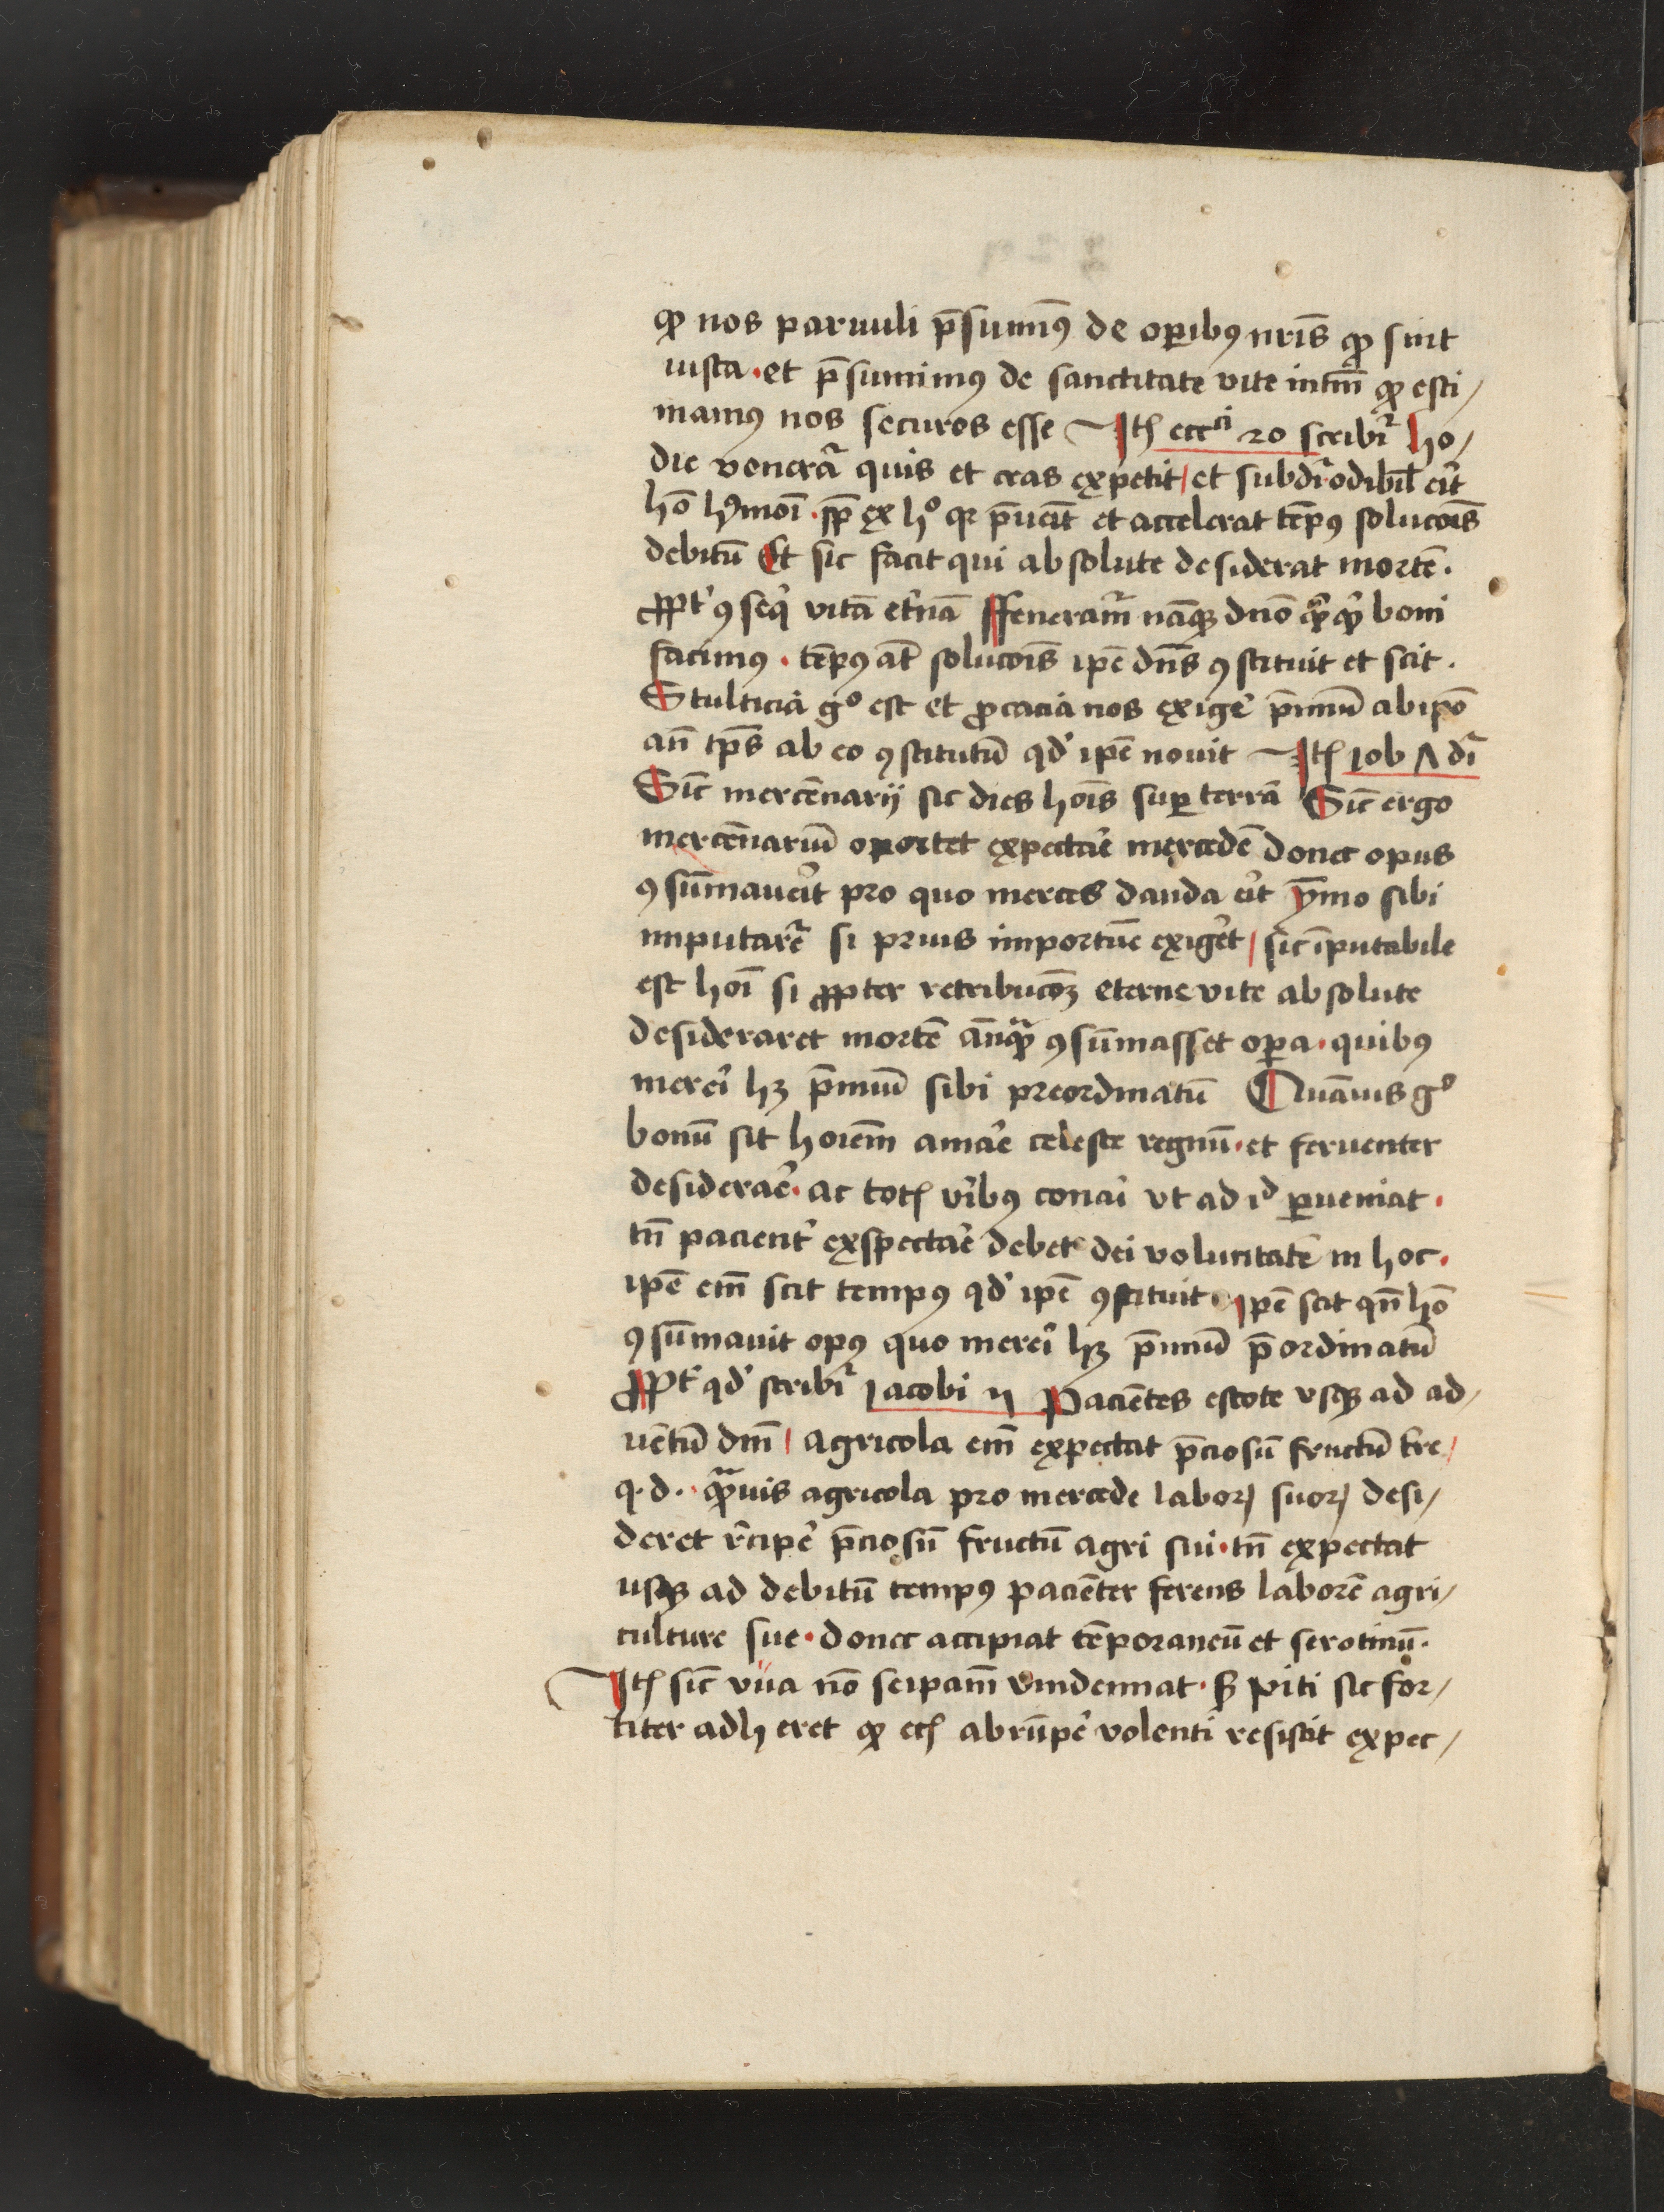 ꝙ nos paruuli p̄sumim9 de oꝑib9 nr̄is ꝙ sint
iusta · et p̄sumim9 de sanctitate vite intm̄ ꝙ esti/
mam9 nos securos esse Itē eccᶜⁱ 20 scribiᵗ ho/
die feneraᵗ quis et cras expetit / et subdiᵗ odibil̄ eīt
hō hm̄oī · spē ex hº qꝛ p̄ueīt et accelerat tēp9 solucōis
debitū Et sic facit qui absolute desiderat mortē ·
ꝓpt' 9seq' vitā et'nā Ffeneram̄ nāqꝫ dn̄o qͥcqͥd boni
facim9 · tēp9 at̄ solucōis ip̄e dn̄s 9stituit et scit ·
Stulticia gº est et ꝓcacia nos exige' p̄miū ab ip̄o
an̄ tp̄s ab eo 9stitutū qd' ip̄e nouit Itē iob Λ dr̄
Sic̄ mercēnarij sic dies hoīs suꝑ terrā Sic̄ ergo
mercēnariū oportet expectae' mercedē donec opus
9sūmaueīt pro quo merces danda eīt ȳmo sibi
imputaret̄ si prius importūe exiget / sic īputabile
est hoī si ꝓpter retribucōꝫ eterne vite absolute
desideraret mortē an̄qᵃꝫ 9sūmasset oꝑa · quib9
merei' hꝫ p̄miū sibi preordinatū Quāuis gº
bonū sit hoīem amae' celeste regnū · et feruenter
desiderae' · ac totꝭ vi'ib9 conai' vt ad iᵈ ꝑueniat ·
tn̄ pacient' exspectae' debet dei voluntatē in hoc ·
ip̄e em̄ scit temp9 qd' ip̄e 9stituit · Ip̄e scit qn̄ hō
9sūmauit op9 quo merei' hꝫ p̄miū p̄ordinatū
Ꝓpt' qd' scribiᵗ iacobi v Paciētes estote vsqꝫ ad ad/
uētū dn̄i / agricola em̄ expectat p̄ciosū fructū tr̄e /
q · d · qᵃꝫuis agricola pro mercede laboꝝ suoꝝ desi/
deret r̄cipe' p̄ciosū fructū agri sui · tn̄ expectat
usqꝫ ad debitū temp9 paciēter ferens laborē agri/
culture sue · donec accipiat tēporaneū et serotinū ·
Itē sic̄ vua nō seip̄am vindemiat · sꝫ viti sic for/
titer adheret ꝙ ecꝭ abrūpe' volenti resistit expec/